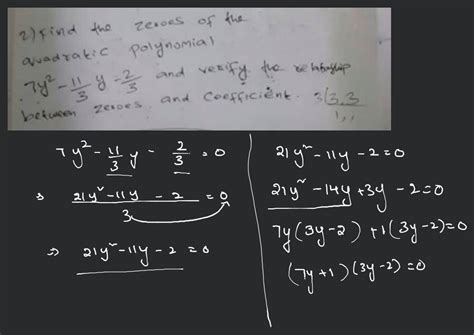 2) Find the zeroes of the
quadratic polynomial
7y² - 11/3 y - 2/3 and verify the relationship
between zeroes and coefficient. 3|3,3
1,1
7y² - 11/3 y - 2/3 = 0
⇒ (21y² - 11y - 2)/3 = 0
⇒ 21y² - 11y - 2 = 0
21y² - 11y - 2 = 0
21y² - 14y + 3y - 2 = 0
7y(3y - 2) + 1(3y - 2) = 0
(7y + 1)(3y - 2) = 0